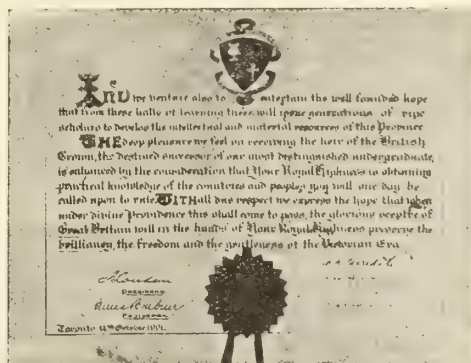 AND we venture also to entertain the well founded hope
that from these halls of learning there will issue generations of ripe
scholars to develop the intellectual and material resources of this Province
THE deep pleasure we feel on receiving the heir of the British
Crown, the destined successor of our most distinguished undergraduate,
is enhanced by the consideration that Your Royal Highness is obtaining
practical knowledge of the countries and peoples you will one day be
called upon to rule. WITH all due respect we express the hope that when
under divine Providence this shall come to pass, the glorious sceptre of
Great Britain will in the hands of Your Royal Highness preserve the
brilliancy, the freedom and the gentleness of the Victorian Era
J Loudon
PRESIDENT
REGISTRAR
Toronto October 1901.